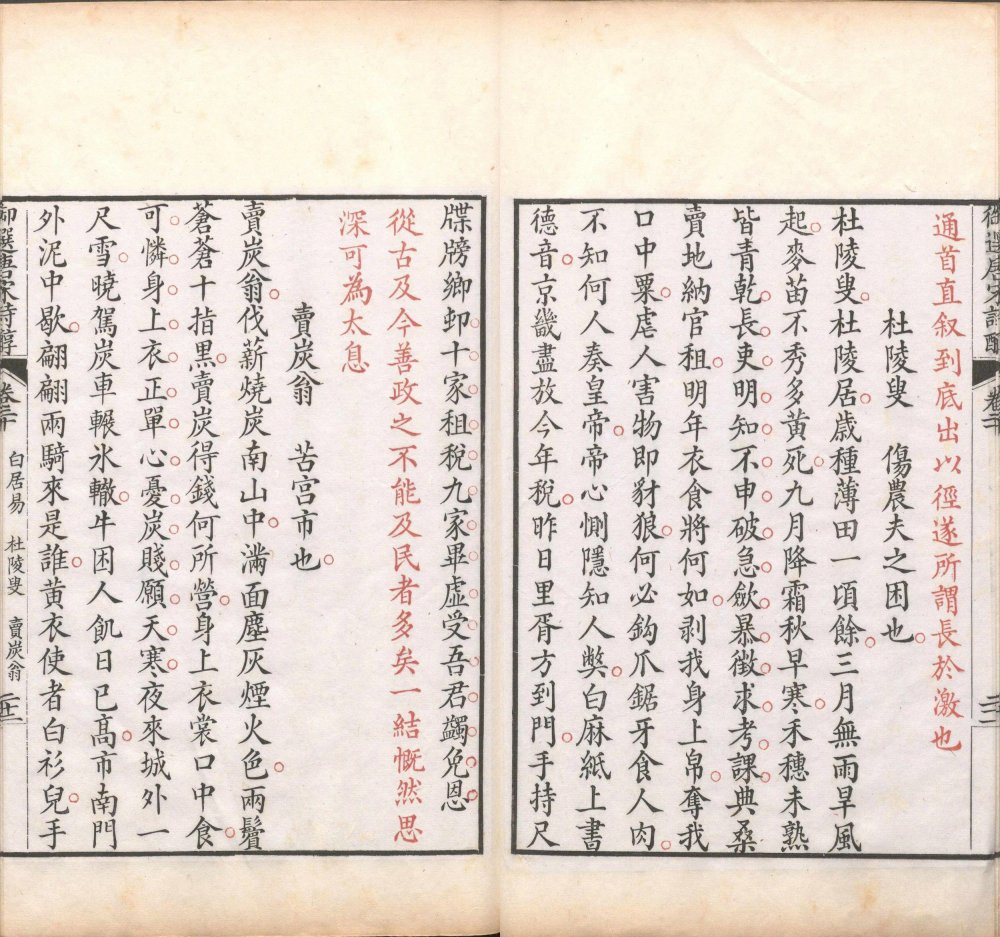 通首直叙到底出以徑遂所謂長於激也
杜陵叟 傷農夫之困也
杜陵叟杜陵居歲種薄田一頃餘三月無雨旱風
起麥苗不秀多黃死九月降霜秋早寒禾穗未熟
皆青乾長吏明知不申破急斂暴徵求考課典桑
賣地納官租明年衣食將何如剥我身上帛奪我
口中粟虐人害物即豺狼何必鈎爪鋸牙食人肉
不知何人奏皇帝帝心惻隱知人獘白麻紙上書
德音京畿盡放今年稅昨日里胥方到門手持尺
牒牓鄉邨十家租稅九家畢虛受吾君蠲免恩
從古及今善政之不能及民者多矣一結慨然思
深可為太息
賣炭翁 苦宮市也
賣炭翁伐薪燒炭南山中滿面塵灰煙火色兩鬢
蒼蒼十指黑賣炭得錢何所營身上衣裳口中食
可憐身上衣正單心憂炭賤願天寒夜來城外一
尺雪曉駕炭車輾氷轍牛困人飢日已高市南門
外泥中歇翩翩兩騎來是誰黃衣使者白衫兒手
御選唐宋詩醇 卷二十 白居易 杜陵叟 賣炭翁